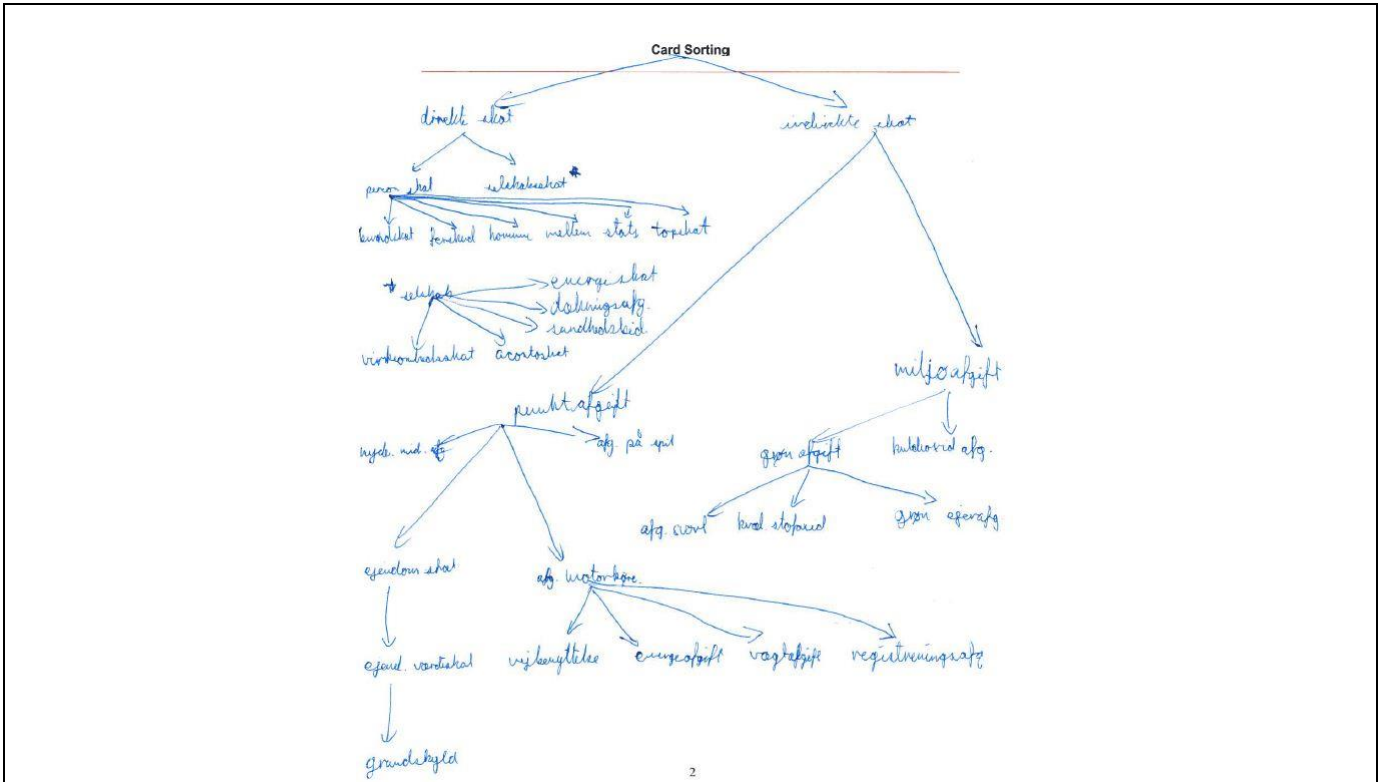 Card Sorting
direkte skat indirekte skat
person skat selskabsskat *
kommune mellem stats topskat
* selskab
energiskat
dækningsafg.
virksomhedsskat acontoskat
miljøafgift
punktafgift
nyd. mid. afg afg. på spil
grøn afgift kuldioxid afg.
afg. svovl kvæl. stofoxid grøn ejerafg
ejendom skat afg. motorkøre.
ejend. værdiskat vejbenyttelse energiafgift vægtafgift registreringsafg
grundskyld
2